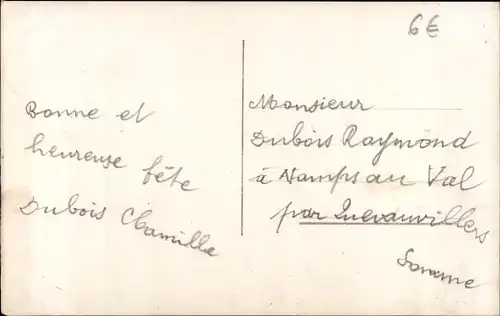 6€
Bonne et
heureuse fête
Dubois Chamille
Monsieur
Dubois Raymond
à Namps au Val
par Quevauvillers
Somme